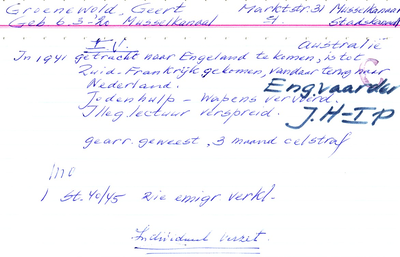 Groenewold, Geert Marktstr. 31 Musselkanaal
Geb 6.3. Musselkanaal Stadskanaal
I.V. Australië
In 1941 getracht naar Engeland te komen, is tot
Zuid-Frankrijk gekomen, vandaar terug naar
Nederland. Eng.vaarder
Jodenhulp - Wapens vervoerd.
Illeg. lectuur verspreid. J.H-IP
gearr. geweest, 3 maand celstraf
1 St. 40/45 zie emigr verkl.
Individueel verzet.